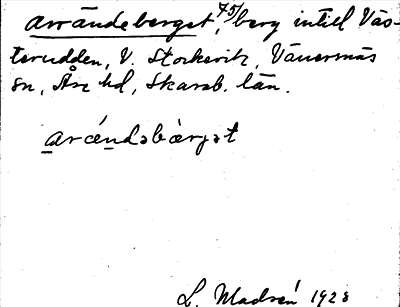 Arrändeberget, 45/ berg intill Väs-
terudden, V. Stockevik, Vänersnäs
sn, Åse hd, Skarab. län.
arǽndəbæ̀rjət
L. Madsén 1928